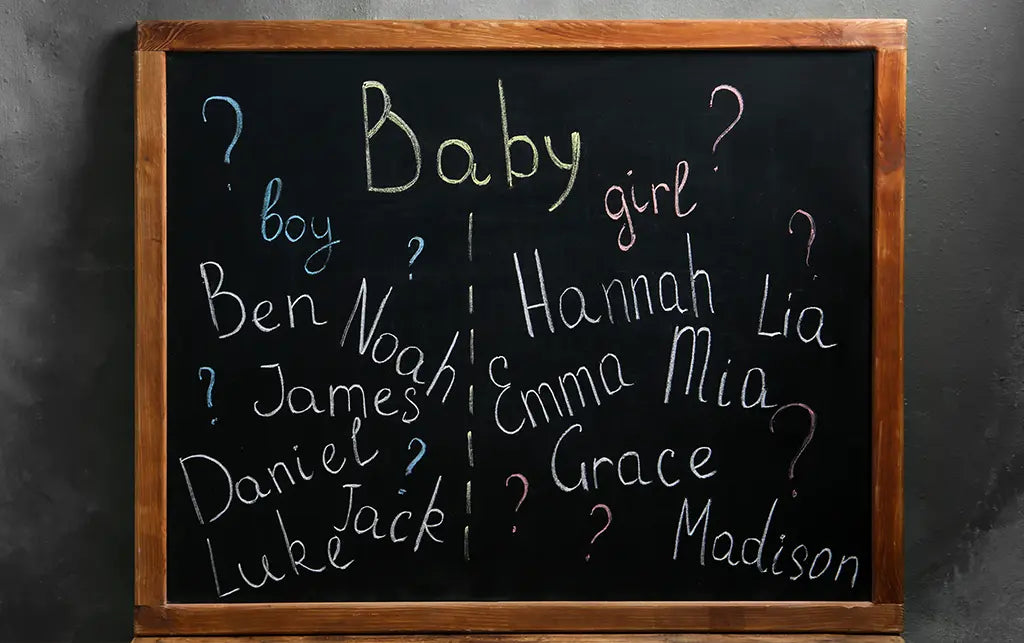 ?
Baby
?
boy
girl
?
?
Ben
Noah
?
James
Daniel
?
Jack
Luke
Hannah
Lia
Emma
Mia
?
Grace
?
?
Madison